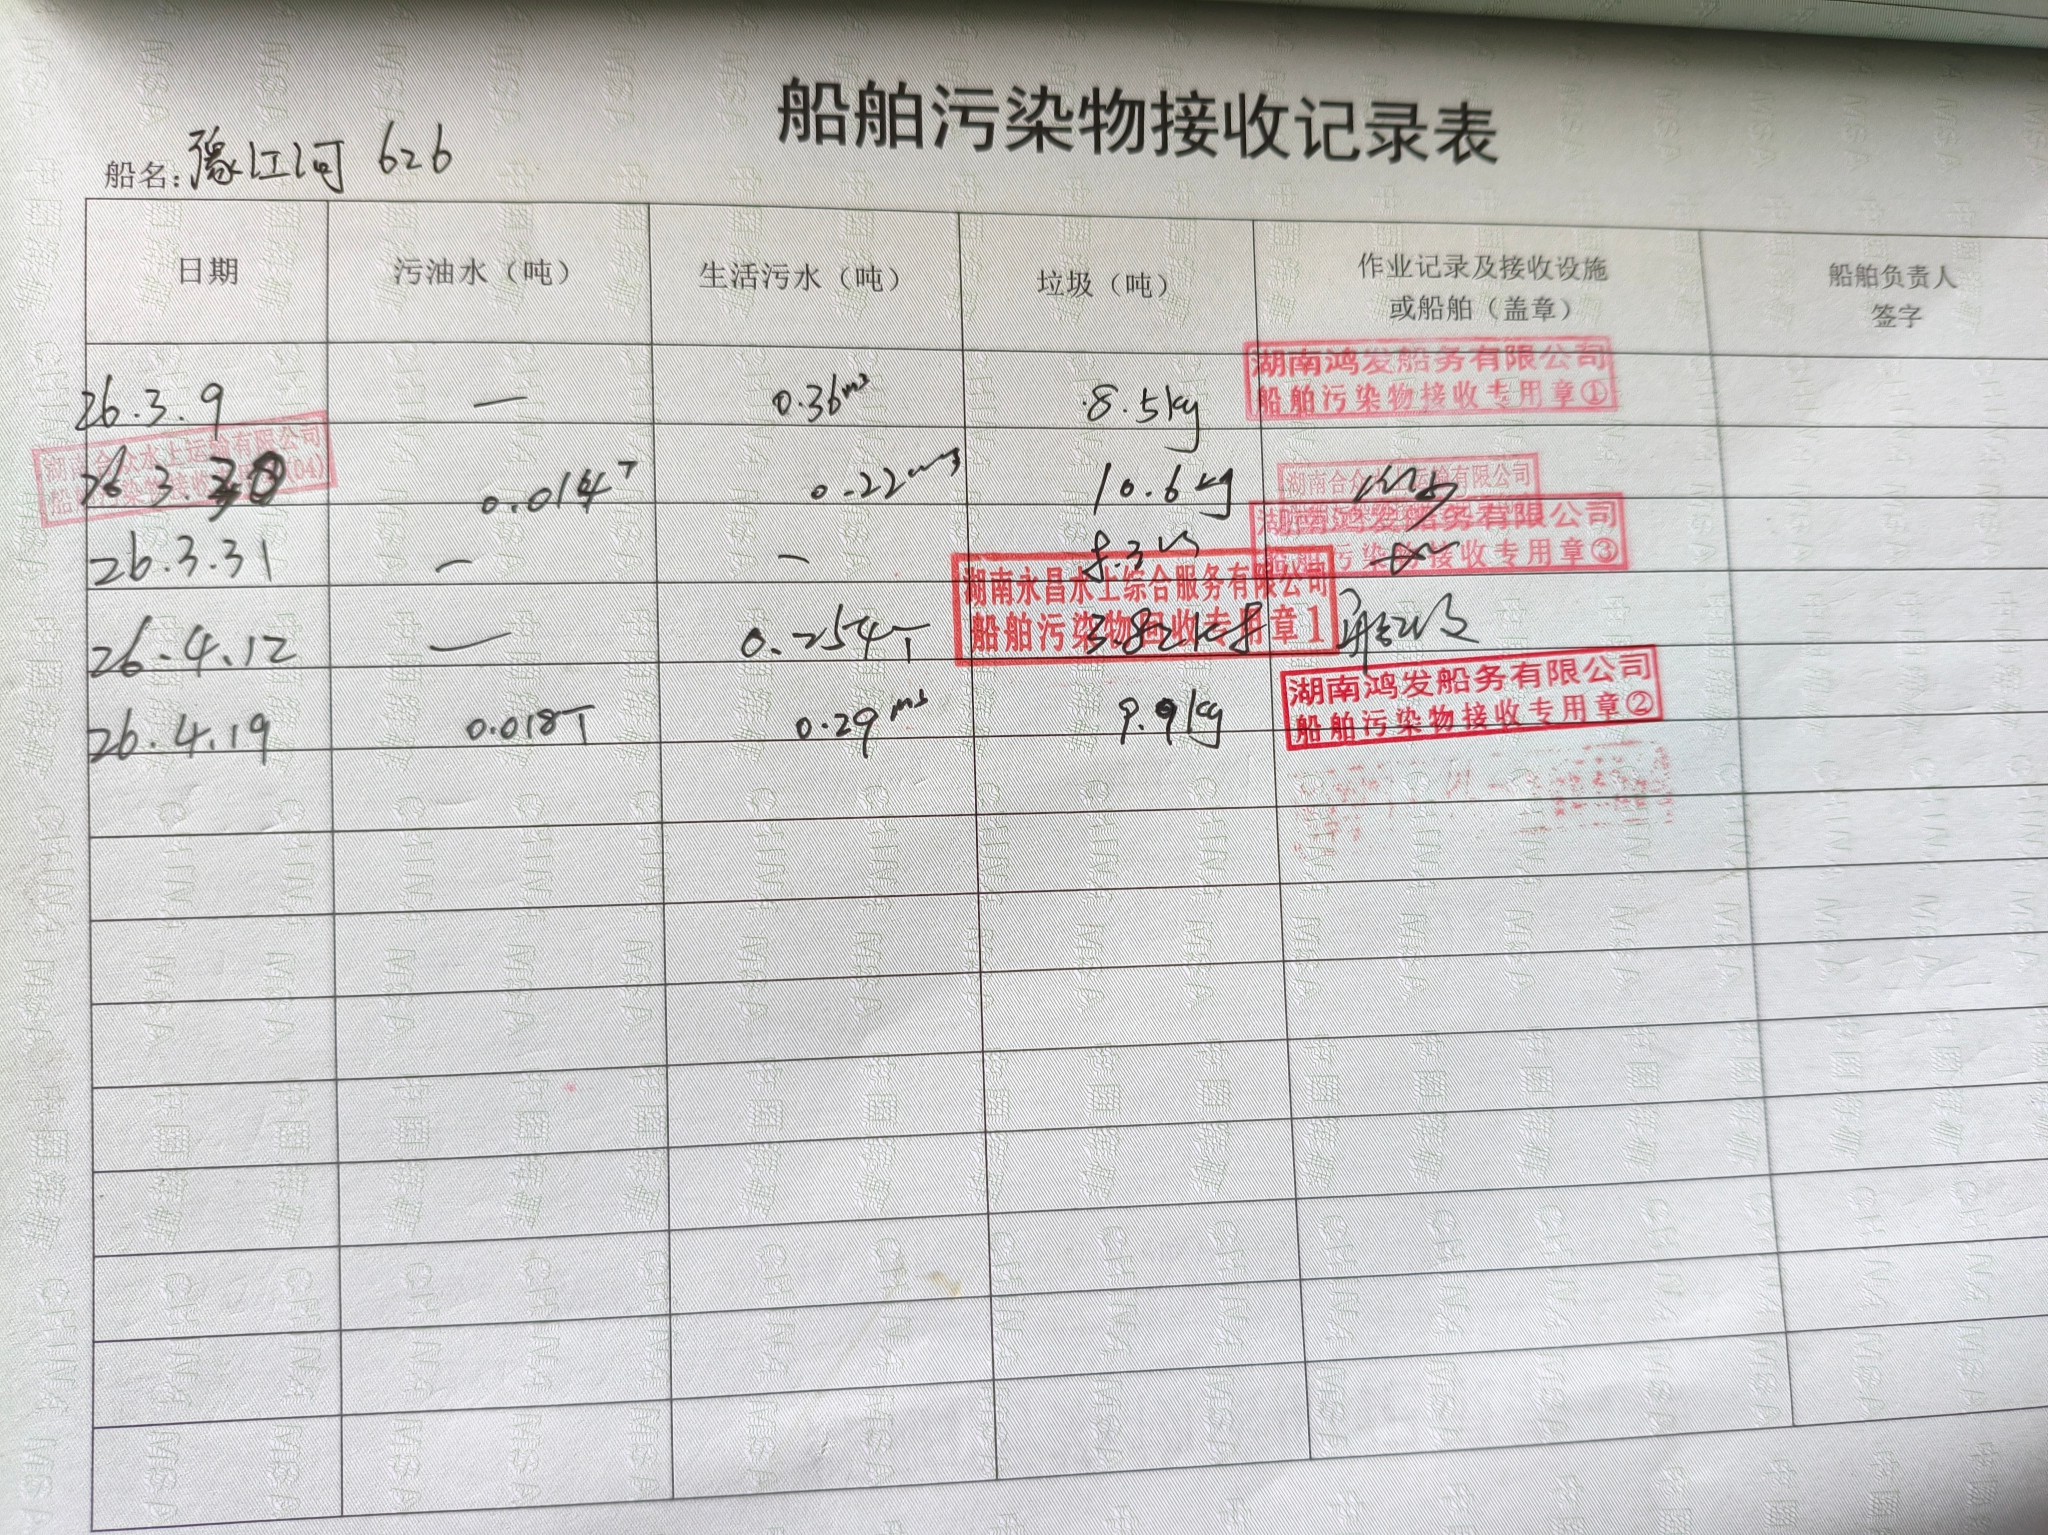 船舶污染物接收记录表
船名：豫江河 626
日期 污油水（吨） 生活污水（吨） 垃圾（吨） 作业记录及接收设施或船舶（盖章） 船舶负责人签字
26.3.9 — 0.36m³ 8.5kg
湖南鸿发船务有限公司
船舶污染物接收专用章①
26.3.30 0.014T 0.22m³ 10.6kg
湖南合众水上运输有限公司
船舶污染物接收专用章(04)
湖南合众水上运输有限公司
26.3.31 — — 8.3
湖南鸿发船务有限公司
船舶污染物接收专用章③
26.4.12 — 0.254T 3.82kg
湖南永昌水上综合服务有限公司
船舶污染物回收专用章1
26.4.19 0.018T 0.29m³ 9.9kg
湖南鸿发船务有限公司
船舶污染物接收专用章②